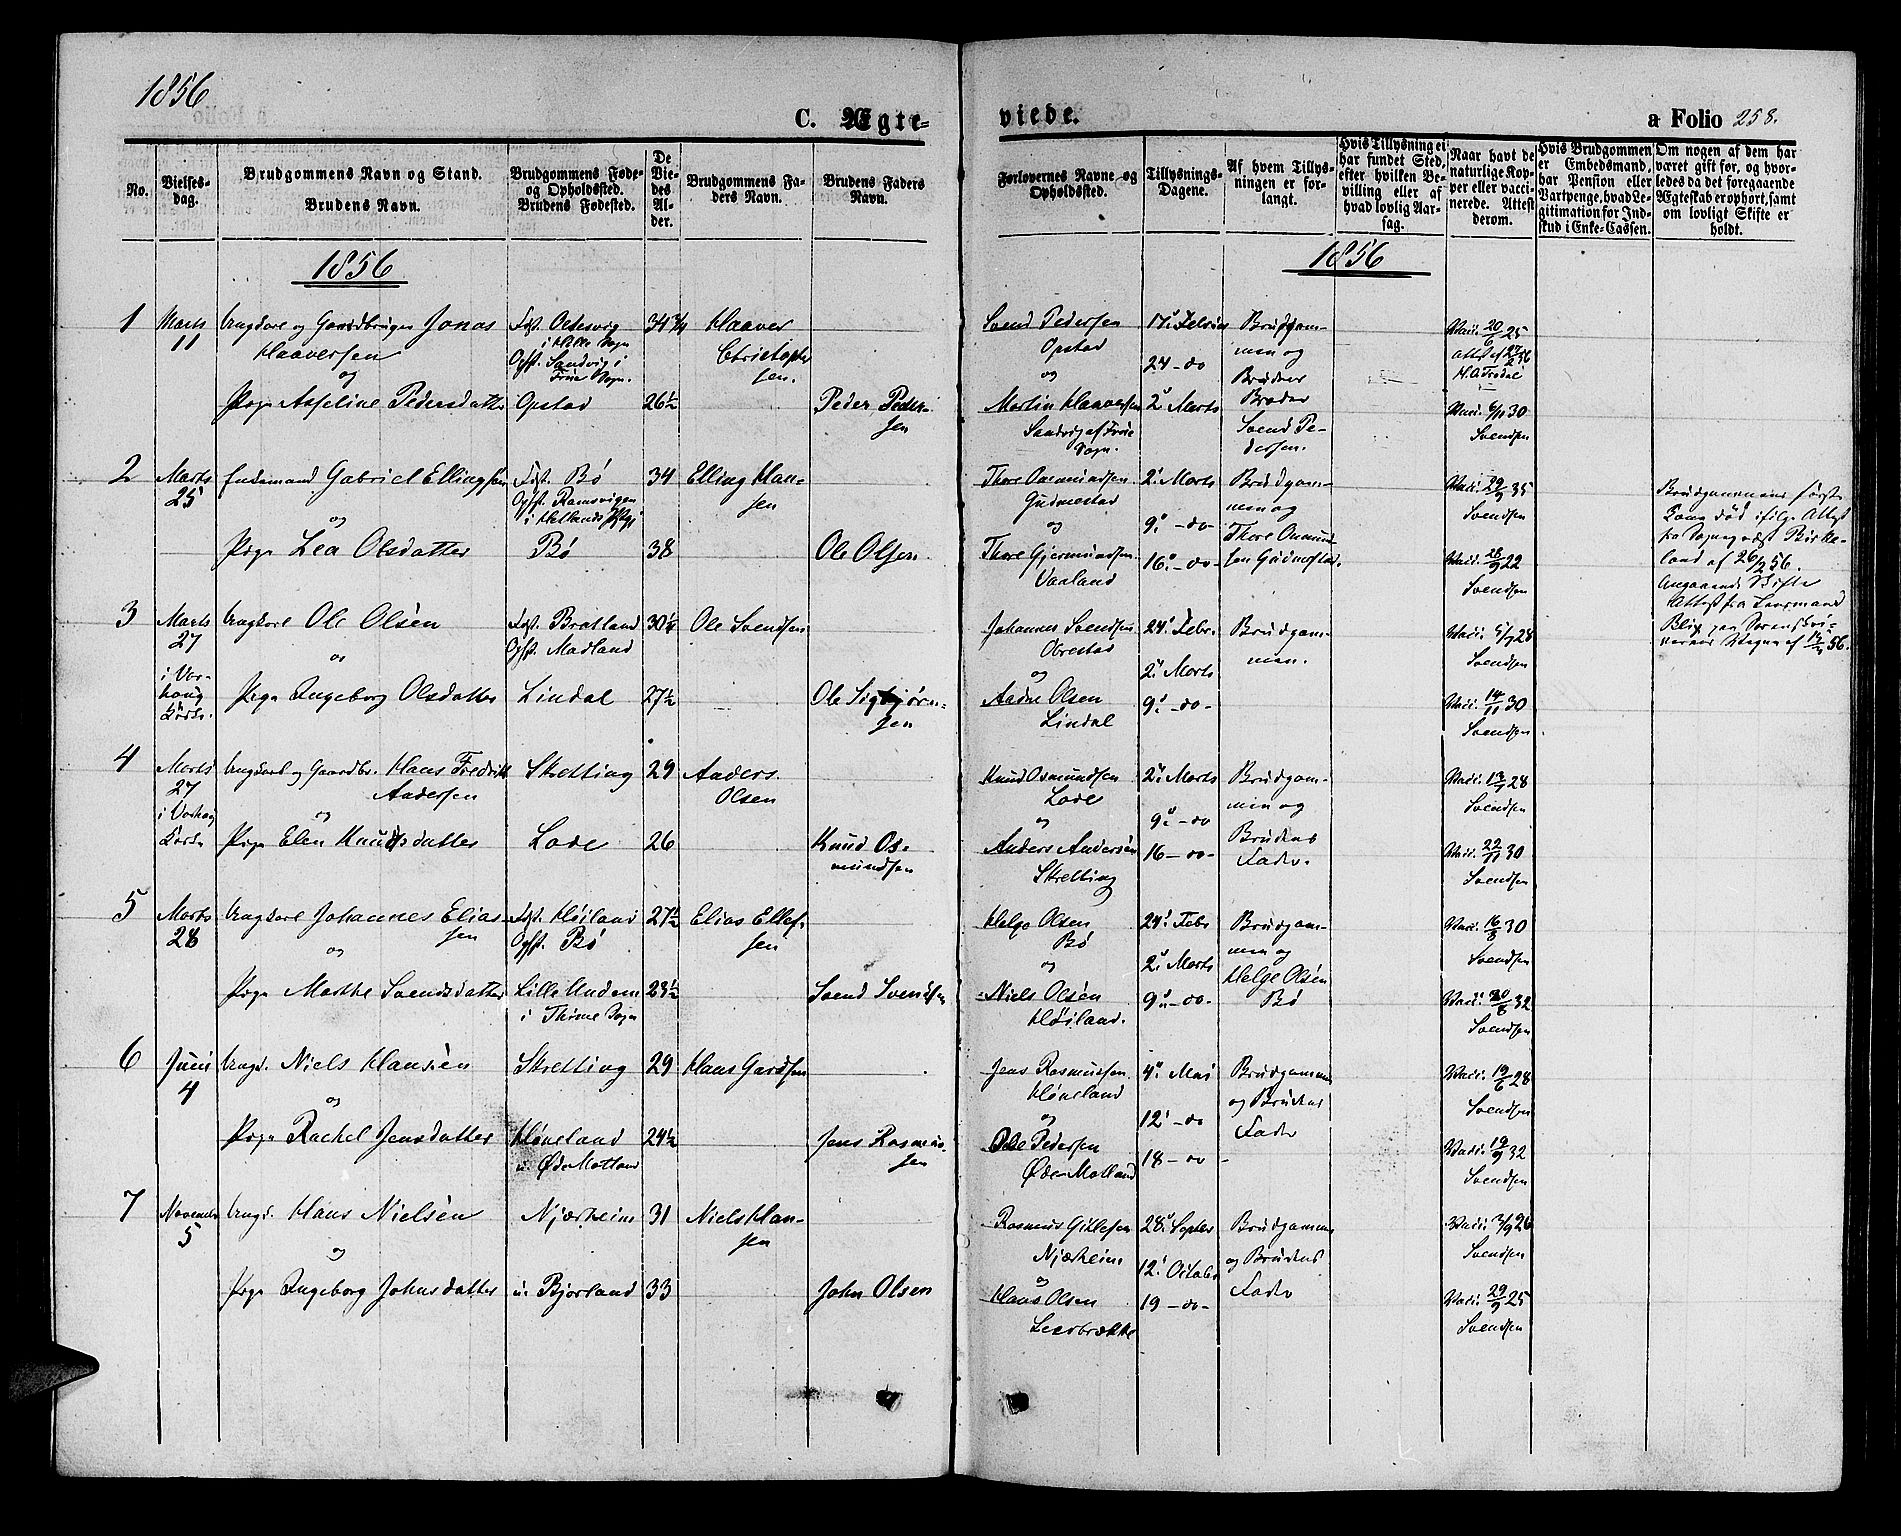 1856
C. Ægte-
viede.
a Folio 258.
No.
Vielses-
dag.
Brudgommens Navn og Stand.
Brudens Navn.
Brudgommens Føde-
og Opholdssted.
Brudens Fødested.
De
Vie-
des
Al-
der.
Brudgommens Fa-
ders Navn.
Brudens Faders
Navn.
Forlovernes Navne og
Opholdssted.
Tillysnings-
Dagene.
Af hvem Tillys-
ningen er for-
langt.
Hvis Tillysning ei
har fundet Sted,
efter hvilken Be-
villing eller af
hvad lovlig Aar-
sag.
Naar havt de
naturlige Kop-
per eller vacci-
nerede. Attest
derom.
Hvis Brudgommen
er Embedsmand,
har Pension eller
Vartpenge, hvad Le-
gitimation for Ind-
skud i Enke-Cassen.
Om nogen af dem har
været gift før, og hvor-
ledes da det foregaaende
Ægteskab er ophørt, samt
om lovligt Skifte er
holdt.
1856
1856
1 Marts 11 Ungkarl og Gaardbruger Jonas
Haaversen
og
Pige Asseline Pedersdatter
i Hille Sogn
Opst. Sandvig i
Sogn.
Opstad
34 3/4
26½
Haaver
Christopher
sen.
Peder Peder-
sen
Svend Pedersen
Opstad
og
Martin Haaversen
Sandvig af
Sogn.
17. Febru
24 - do
2. Marts
Brudgom-
men og
Brudens
Broder
Svend Pe-
dersen.
Vacc. 20/6 25
Vacc. 6/11 30
Svendsen
2 Marts 25 Enkemand Gabriel Ellingsen
og
Pige Lea Olsdatter
Fdst. Bø
Opst. Ramsvigen
i Hetlands Pgj
Bø
34
38
Elling Han-
sen
Ole Olsen
Thore Osmundsen
Gudmestad
og
Thore Gjermundsen
Vaaland
2. Marts
9. - do -
16. - do -
Brudgom-
men og
Thore Osmund
sen Gudmestad.
Vacc. 29/9 35
Svendsen
Vacc. 28/9 22
Svendsen
Brudgommens første
Kone død ifølge Attest
fra Sognepræst Birke-
land af 26/2 56.
Angaaende Skifte
Attest fra Leensmand
Blix paa Sorenskri-
verens Vegne af 14/3 56.
3 Marts 27
i Var-
houg
Kirke.
Ungkarl Ole Olsen
og
Pige Ingeborg Olsdatter
Fdst. Bratland
Opst. Madland
Lindal
30¼
27½
Ole Svendsen
Ole Sigbjørn-
sen
Johannes Svendsen
Obrestad
og
Andr Olsen
Lindal
24. Febr.
2. Marts
9. - do -
Brudgom-
men.
Vacc. 5/7 28
Svendsen
Vacc. 14/11 30
Svendsen
4 Marts 27
i Varhoug
Kirke
Ungkarl og Gaardbr. Hans Fredrik
Andersen
og
Pige Elen Knudsdatter
Skretting
Lode
29
26
Anders
Olsen
Knud Os-
mundsen
Knud Osmundsen
Lode
og
Anders Andersen
Skretting
2. Marts
9. - do
16 - do -
Brudgom-
men og
Brudens
Fader.
Vacc. 13/1 28
Svendsen
Vacc. 22/11 30
Svendsen
5 Marts 28 Ungkarl Johannes Elias-
sen
og
Pige Marthe Svendsdatter
Fdst. Høiland
Opst. Bø
Lille Undem
i Thime Sogn
27½
23½
Elias Ellef-
sen
Svend Svendsen
Helge Olsen
Bø
og
Niels Olsen
Høiland.
24. Febr
2. Marts
9. - do -
Brudgom-
men og
Helge Olsen
Bø
Vacc. 16/8 30
Svendsen
Vacc. 30/8 32
Svendsen
6 Juni 4 Ungk. Niels Hansen
og
Pige Rachel Jensdatter
Skretting
Høneland
u. Øde Motland
29
24½
Hans Gardsen
Jens Rasmus-
sen
Jens Rasmussen
Høneland
og
Ole Pedersen
Øde-Motland
4. Mai
12. - do
18 - do -
Brudgommen
og Brudens
Fader
Vacc. 19/6 28
Svendsen
Vacc. 19/9 32
Svendsen
7 November 5 Ungk. Hans Nielsen
og
Pige Ingeborg Johnsdatter
Njærheim
u. Bjorland
31
33
Niels Han-
sen
John Olsen
Rasmus Gillesen
Njærheim
og
Hans Olsen
Leerbrække
28. Septbr
12. October
19 - do -
Brudgommen
og Brudens
Fader
Vacc. 3/9 26
Svendsen
Vacc. 29/9 25
Svendsen